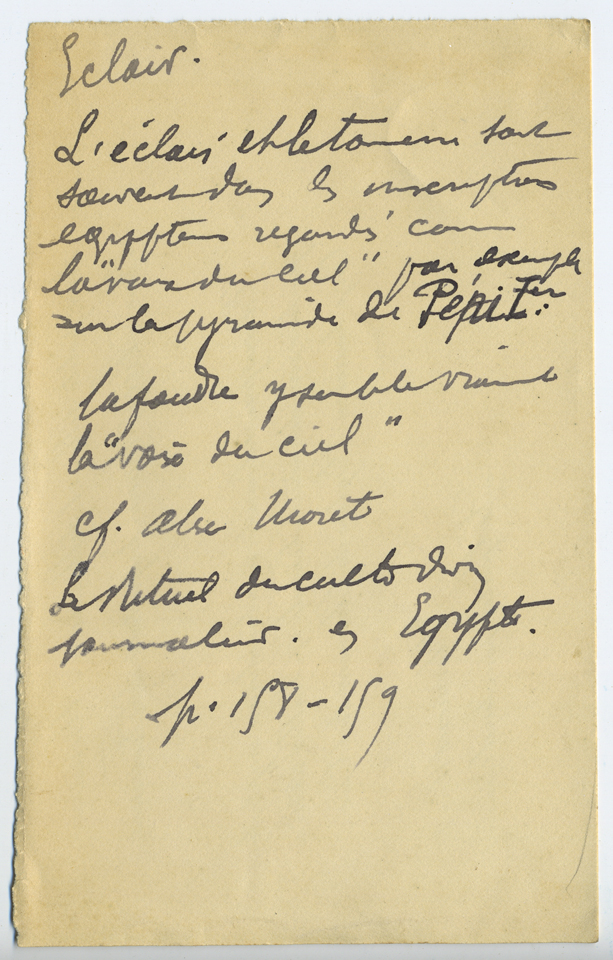 Eclair.
L'éclair et le tonnerre sont
souvent dans les inscriptions
égyptiens regardés comme
la "voix du ciel" par exemple
sur la pyramide de Pépi Ier:
la foudre y semble vraiment
la "voix du ciel"
cf. also Moret
Le Rituel du culte divin
journalier. en Egypte.
p. 158-159